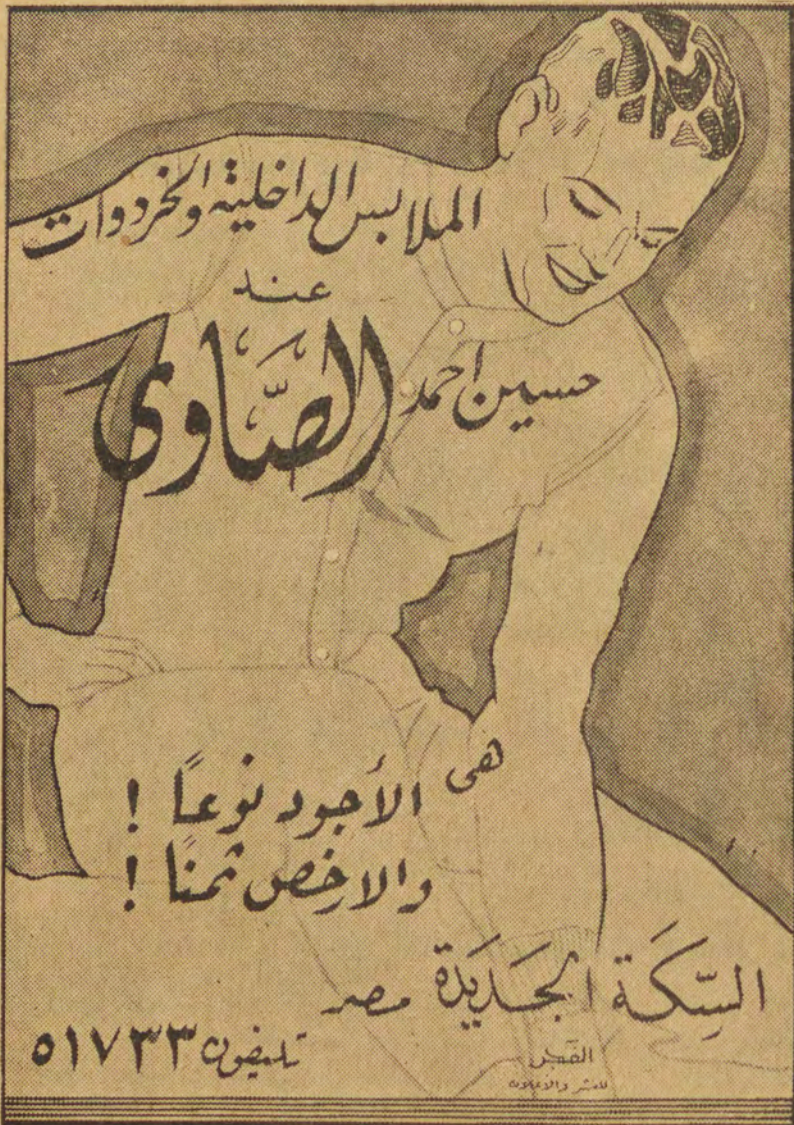 الملابس الداخلية والخردوات
عند
حسين احمد الصّاوى
هى الأجود نوعاً !
والارخص ثمناً !
السِّكَة الجَديَدَة مصر
تليفون ٥١٧٣٣
للنشر والاعلان